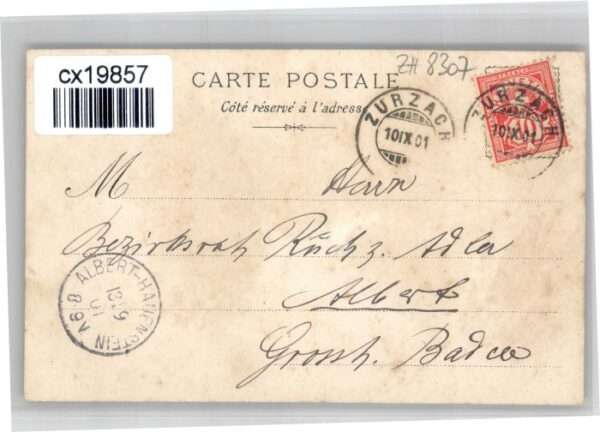 cx19857
ZH 8307
CARTE POSTALE
Côté réservé à l'adresse
ZURZACH
10 IX 01
ZURZACH
10 IX 01
M Herrn
Bezirksrat Rüch z. Adler
Albert
Grossh. Baden
ALBERT-HAUENSTEIN
13 9
01
V 6-8